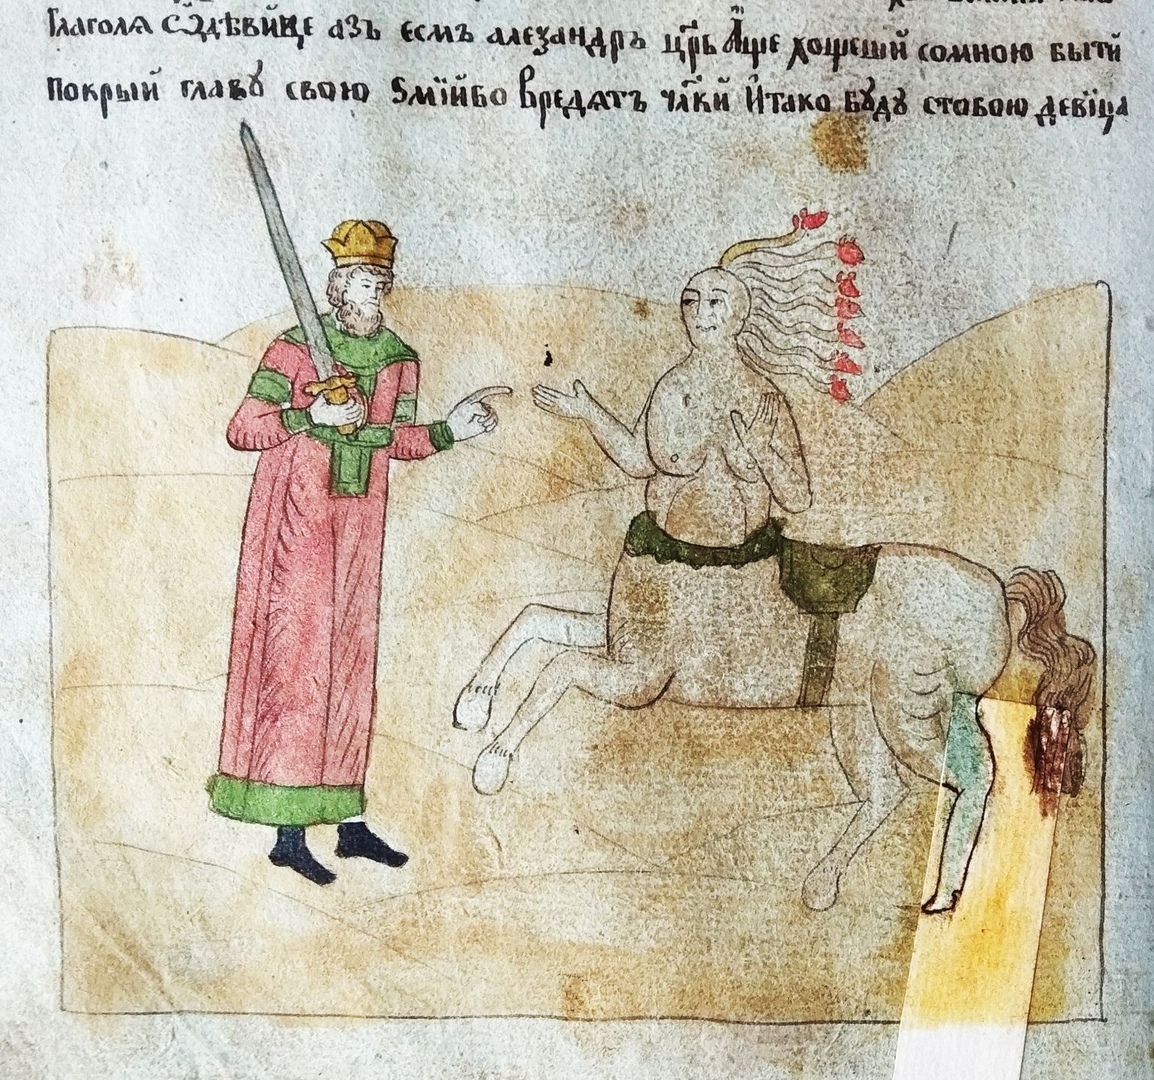 Глаголя Ѿдѣвице азъ есмъ алеѯандръ ц҃рь Аще хощеши сомною быти
покрый главꙋ свою Ѕмїйбо вредятъ чл҃ки Итако бꙋдꙋ стобою девїца